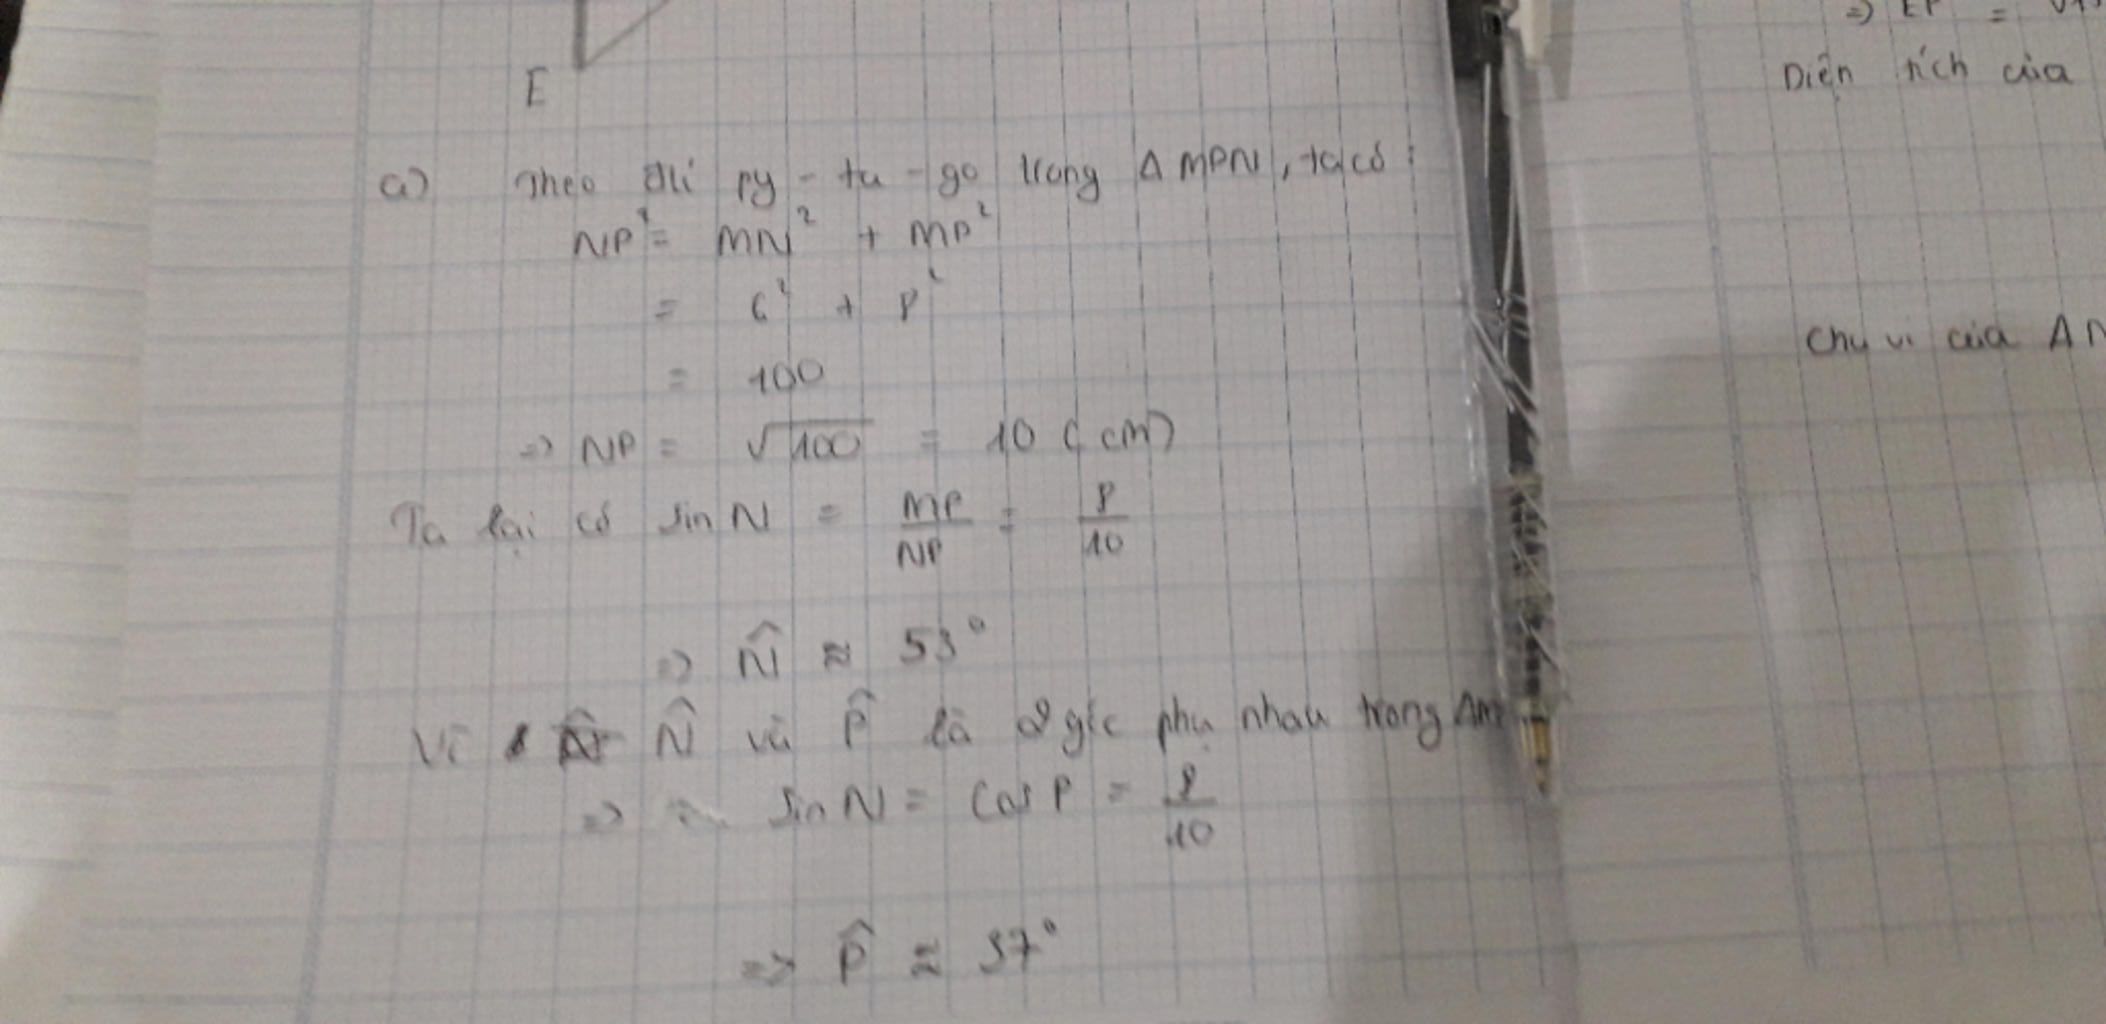 E
a) Theo đlí py-ta-go trong Δ MPN, ta có:
NP² = MN² + MP²
= 6² + 8²
= 100
=> NP = √100 = 10 (cm)
Ta lại có sin N = MP/NP = 8/10
=> N̂ ≈ 53°
Vì N̂ và P̂ là 2 góc phụ nhau trong ΔM
=> sin N = cos P = 8/10
=> P̂ ≈ 37°
=> EP =
Diện tích của
Chu vi của Δ